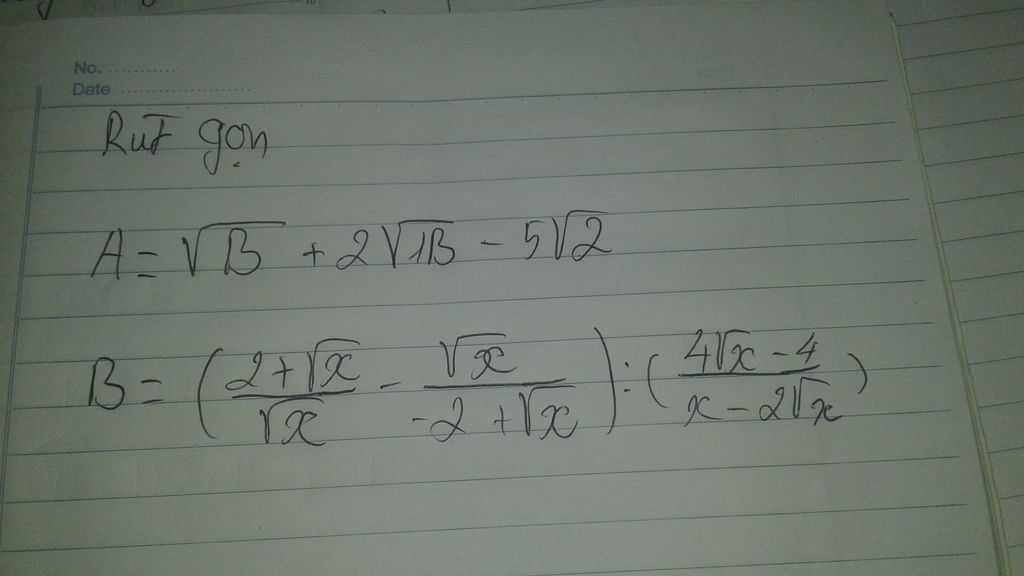 No. ...........
Date ......................
Rút gọn
A = √8 + 2√18 - 5√2
B = ( (2+√x)/√x - √x/(-2+√x) ) : ( (4√x - 4)/(x - 2√x) )